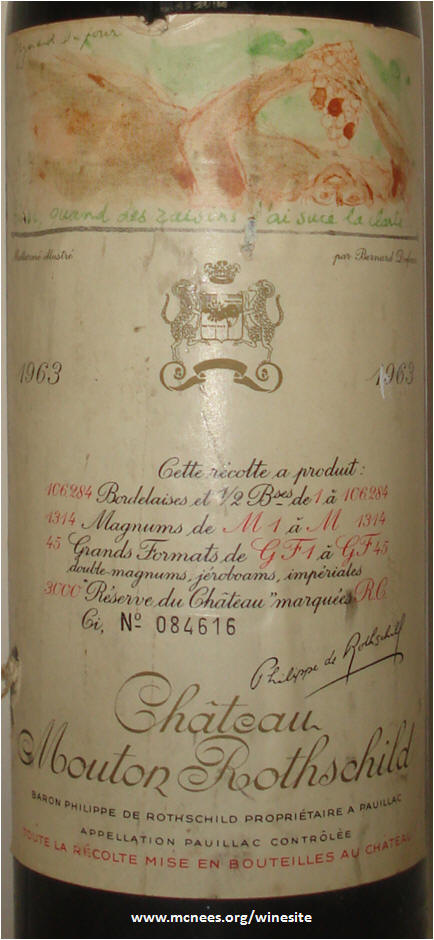 Bernard Dufour
quand des raisins j'ai sucé la clarté
Mallarmé illustré par Bernard Dufour
1963 1963
Cette récolte a produit :
106284 Bordelaises et 1/2 Bses de 1 à 106284
1314 Magnums de M 1 à M 1314
45 Grands Formats de G F 1 à G F 45
double-magnums, jeroboams, impériales
3000 "Réserve du Château" marquées R.C.
Ci, Nº 084616
Philippe de Rothschild
Château
Mouton Rothschild
BARON PHILIPPE DE ROTHSCHILD PROPRIÉTAIRE A PAUILLAC
APPELLATION PAUILLAC CONTRÔLÉE
TOUTE LA RÉCOLTE MISE EN BOUTEILLES AU CHÂTEAU
www.mcnees.org/winesite